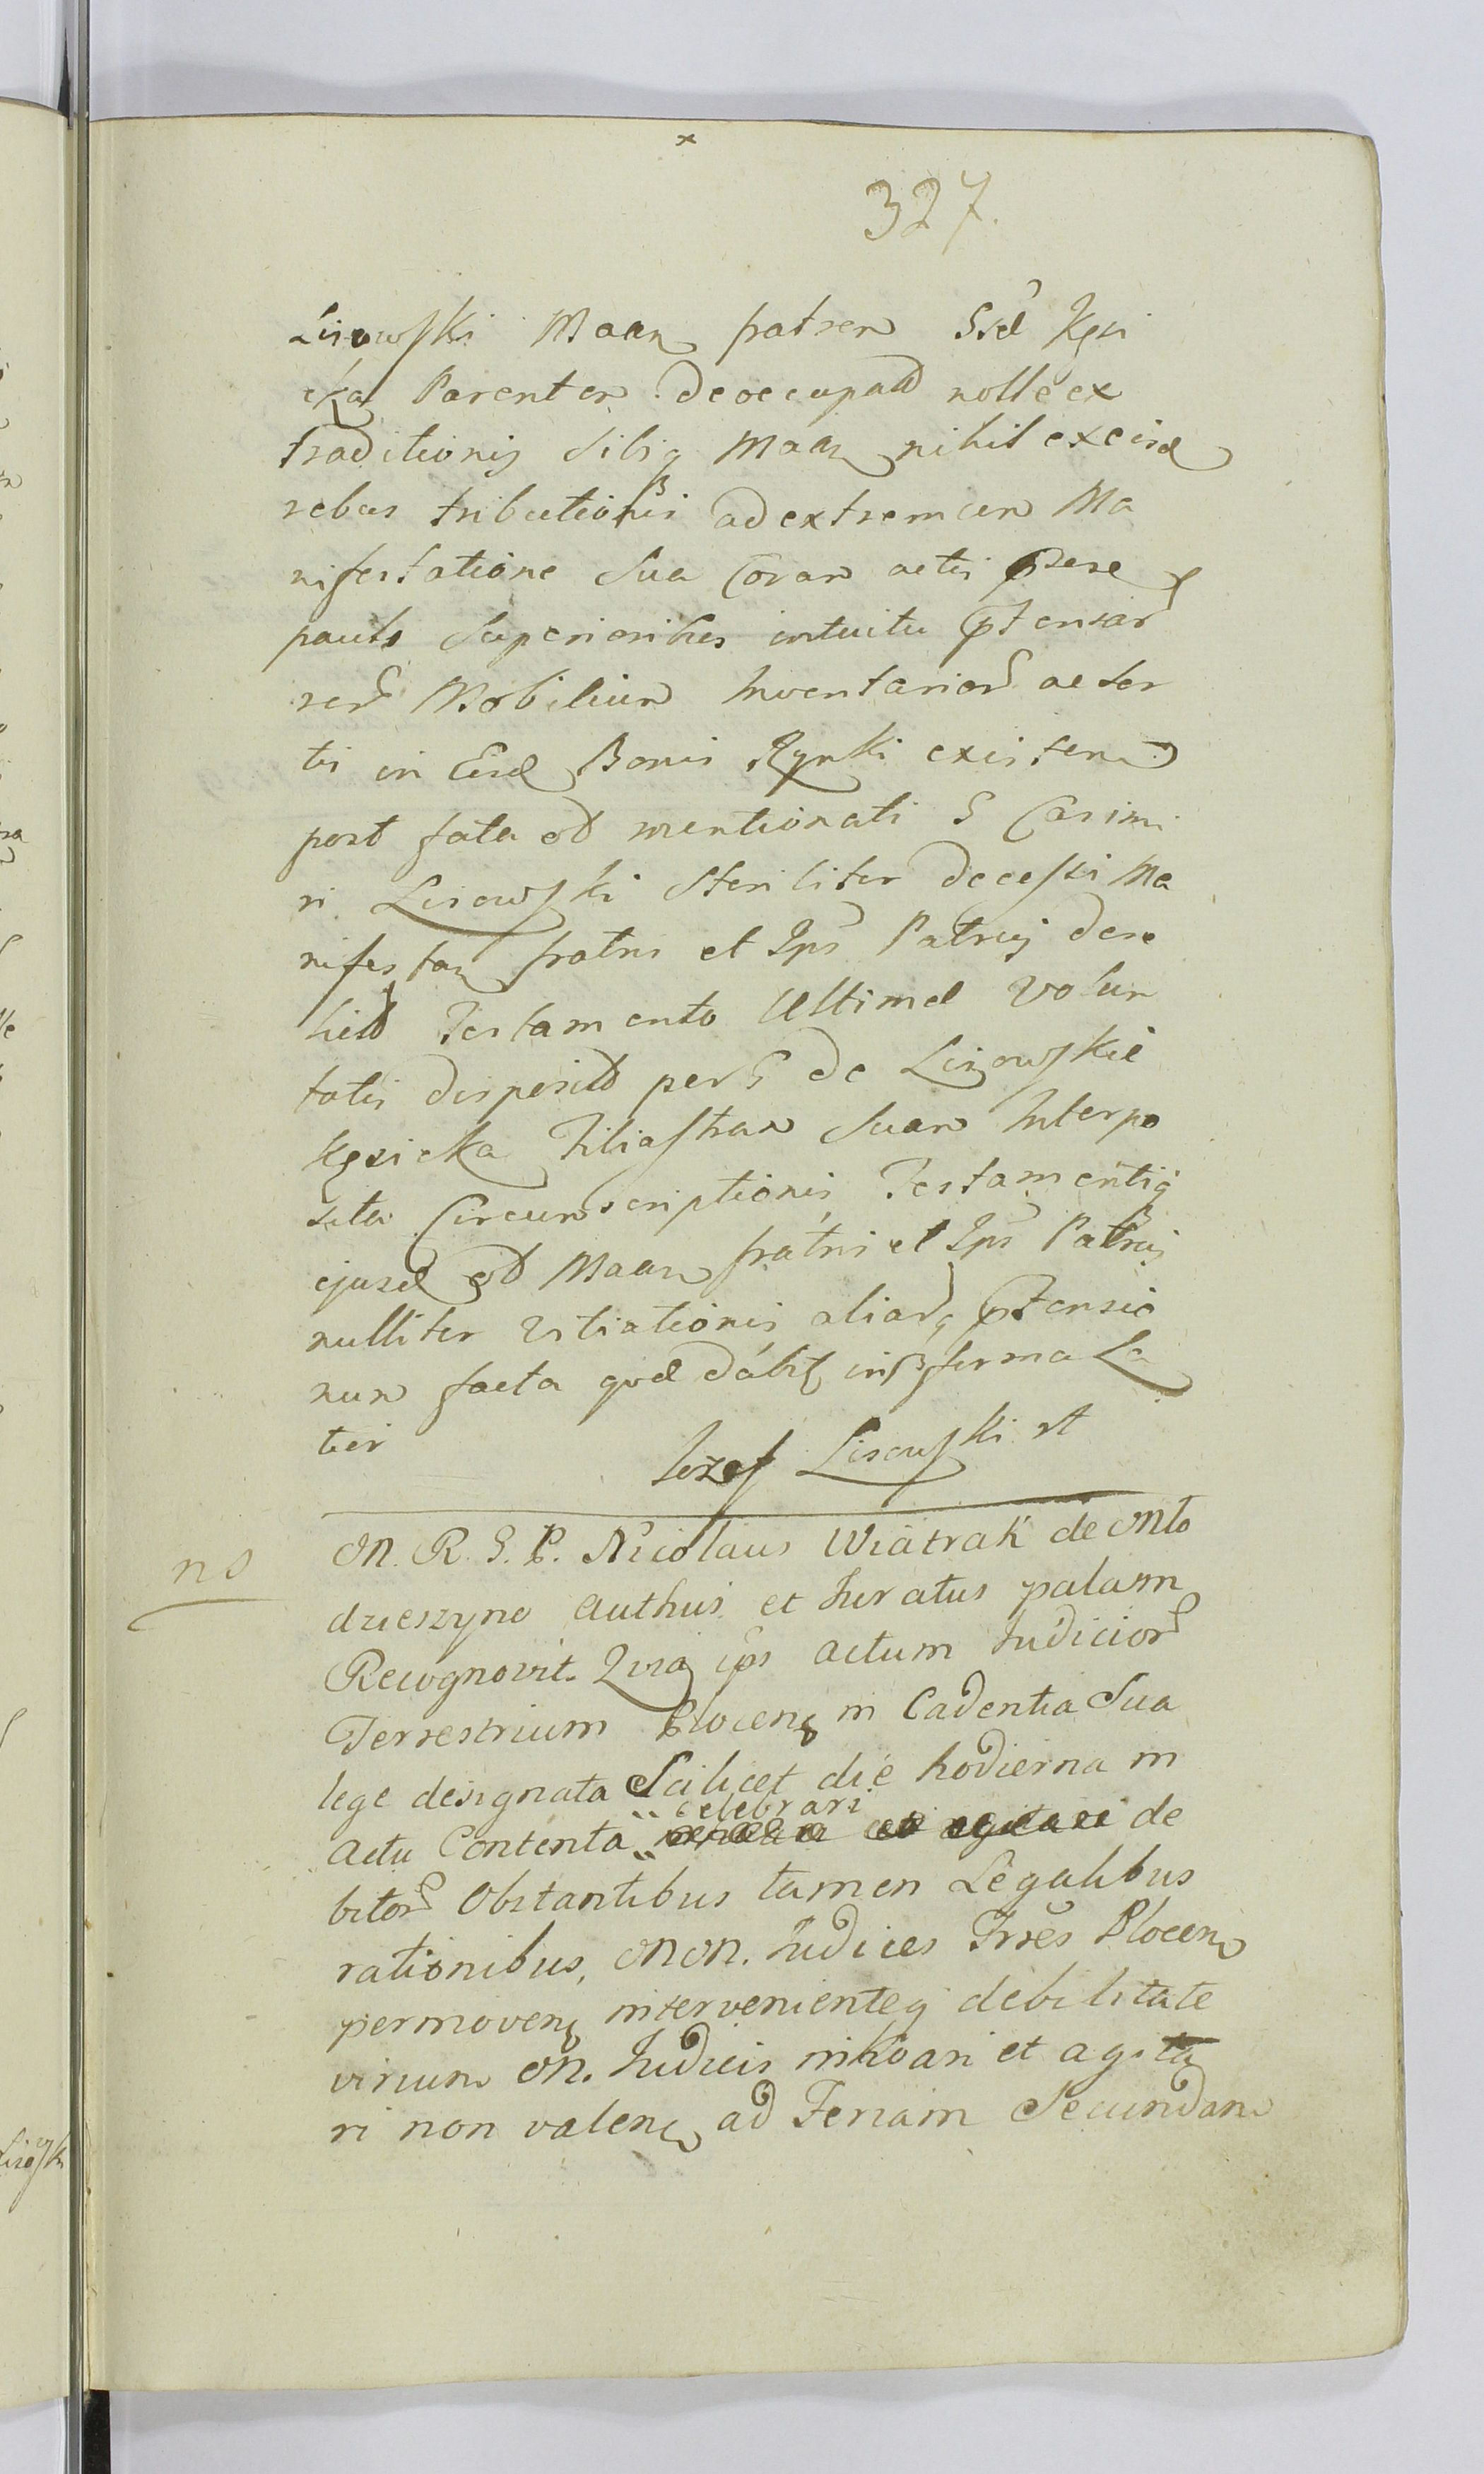 327.
Lisowski Maan fratren Ssd Kęsi
cka Parenten deoccupatt nolle ex
traditionis sibiq Maan nihil ex eisd
rebus tributionis ad extremum Ma
nifestatione sua coran actis
paulo superioribus intuitu ptensar
rer Mobilium Inventarior ac ser
tis in Eisd Bonis Rynki existen
post fata ob mentionati G Casimi
ri Lisowski steriliter decessi Ma
nifestan fratris et Ips Patruj dere
lict Testamento Ultimae Volun
tatis disposit per G de Lisowskie
Kęsicka Filiastran suan Interpo
sita Circumscriptionis Testamentiq
ejusd ob Maan fratris et Ips Patruj
nulliter Vitiationis aliarq ptensio
nun facta qvod in forma La
tiei
Iozef Lisowski
no
M. R. G. P. Nicolaus Wiatrak de Mło
dzieszyno Authus et Iuratus palam
Recognovit. Quia ips actum Iudicior
Terrestrium Plocen in Cadentia Sua
lege designata Scilicet die hodierna in
Actu Contenta celebrari de
bitor Obstantibus tamen Legalibus
rationibus, MM. Iudices Trres Plocen
permoven intervenienteq debilitate
virium M. Iudicis inhoari et agita
ri non valen ad Feriam Secundam